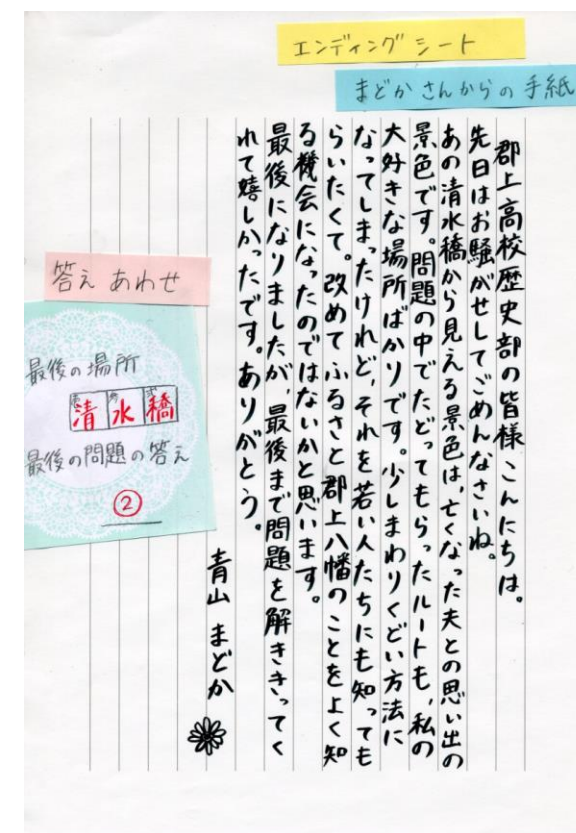 エンディングシート
まどかさんからの手紙
郡上高校歴史部の皆様こんにちは。
先日はお騒がせしてごめんなさいね。
あの清水橋から見える景色は、亡くなった夫との思い出の
景色です。問題の中でたどってもらったルートも、私の
大好きな場所ばかりです。少しまわりくどい方法に
なってしまったけれど、それを若い人たちにも知っても
らいたくて。改めてふるさと郡上八幡のことをよく知
る機会になったのではないかと思います。
最後になりましたが、最後まで問題を解ききってく
れて嬉しかったです。ありがとう。
青山まどか
答えあわせ
最後の場所
清水橋
最後の問題の答え
②